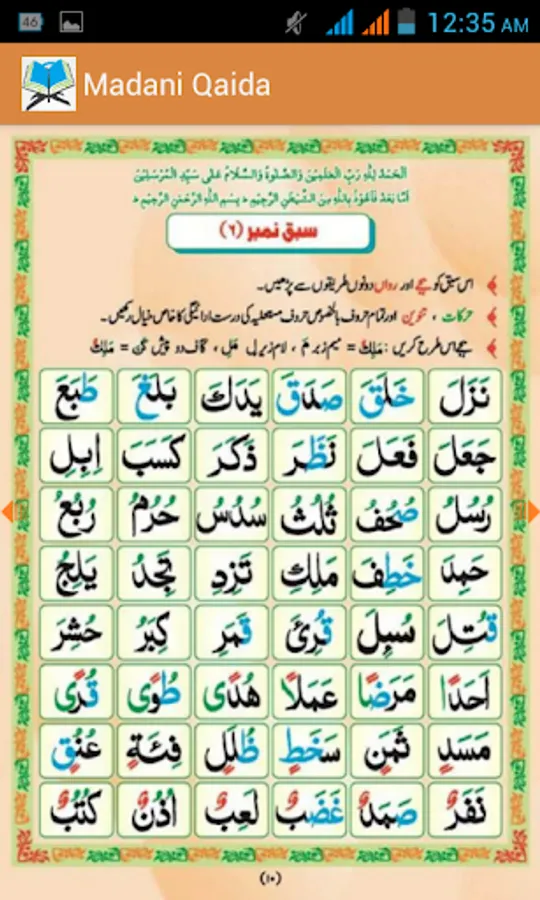 46 12:35 AM
Madani Qaida
اَلْحَمْدُ لِلّٰهِ رَبِّ الْعٰلَمِيْنَ وَالصَّلٰوةُ وَالسَّلَامُ عَلٰى سَيِّدِ الْمُرْسَلِيْنَ
اَمَّا بَعْدُ فَاَعُوْذُ بِاللّٰهِ مِنَ الشَّيْطٰنِ الرَّجِيْمِ ؕ بِسْمِ اللّٰهِ الرَّحْمٰنِ الرَّحِيْمِ ؕ
سبق نمبر (۶)
اس سبق کو ہجے اور رواں دونوں طریقوں سے پڑھیں۔
حرکات ، تنوین اور تمام حروف بالخصوص حروف مستعلیہ کی درست ادائیگی کا خاص خیال رکھیں۔
ہجے اس طرح کریں : مَلِكٌ = میم زبر مَ ، لام زیر لِ مَلِ ، کاف دو پیش كٌ = مَلِكٌ
نَزَلَ خَلَقَ صَدَقَ يَدَكَ بَلَغَ طَبَعَ
جَعَلَ فَعَلَ نَظَرَ ذَكَرَ كَسَبَ اِبِلِ
رُسُلُ صُحُفُ ثُلُثُ سُدُسُ حُرُمُ رُبُعُ
حَمِدَ خَطِفَ مَلِكِ تَزِدِ تَجِدُ يَلِجُ
قُتِلَ سُئِلَ قُرِئَ قَمَرِ كِبَرُ حُشِرَ
اَحَدًا مَرَضًا عَمَلًا هُدًى طُوًى قُرًى
مَسَدٍ ثَمَنٍ سَخَطٍ ظُلَلٍ فِئَةٍ عُنُقٍ
نَفَرٌ صَمَدٌ غَضَبٌ لَعِبٌ اُذُنٌ كُتُبٌ
(۱۰)